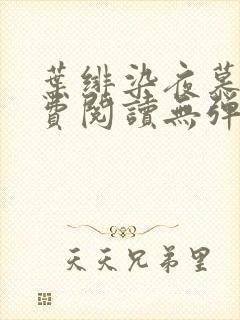 葉緋染夜慕
費閱讀無彈
天天兄弟里